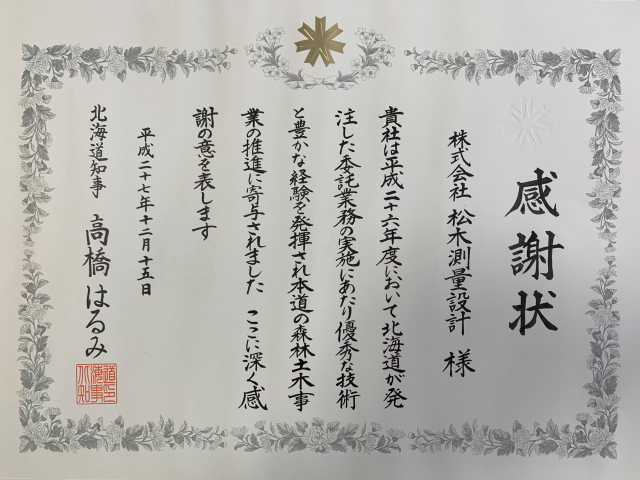 感謝状
株式会社 松木測量設計 様
貴社は平成二十六年度において北海道が発
注した委託業務の実施にあたり優秀な技術
と豊かな経験を発揮され本道の森林土木事
業の推進に寄与されました ここに深く感
謝の意を表します
平成二十七年十二月十五日
北海道知事 高橋はるみ